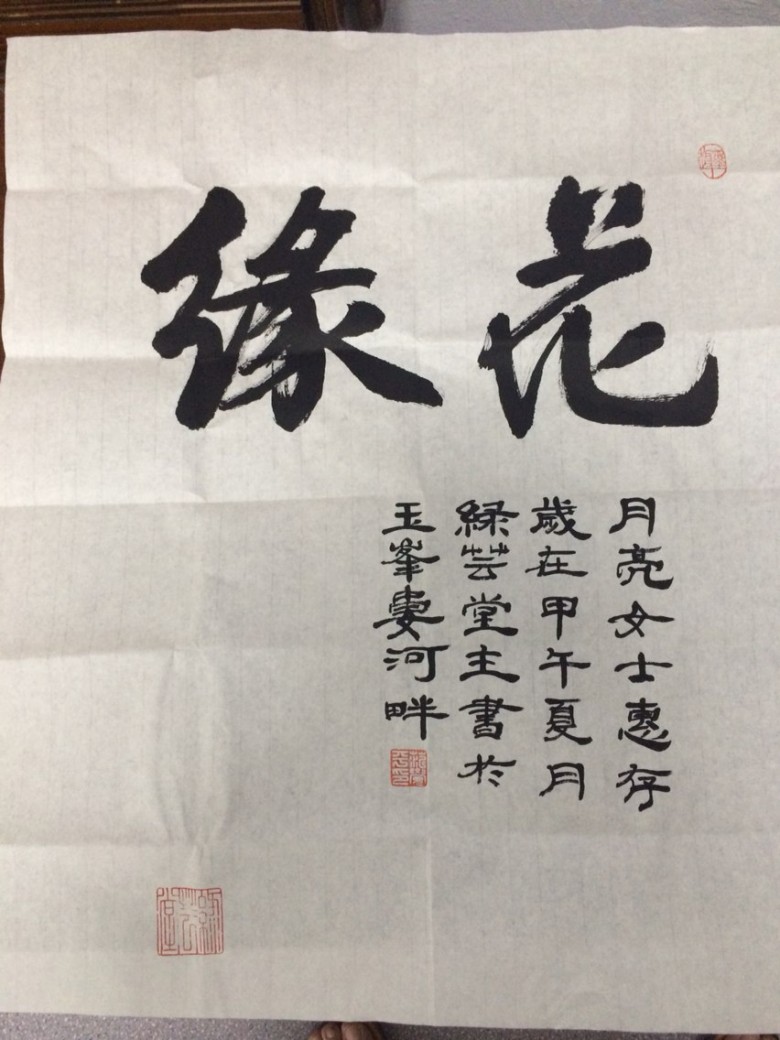 花缘
月亮女士惠存
歲在甲午夏月
緑芸堂主書於
玉峯婁河畔